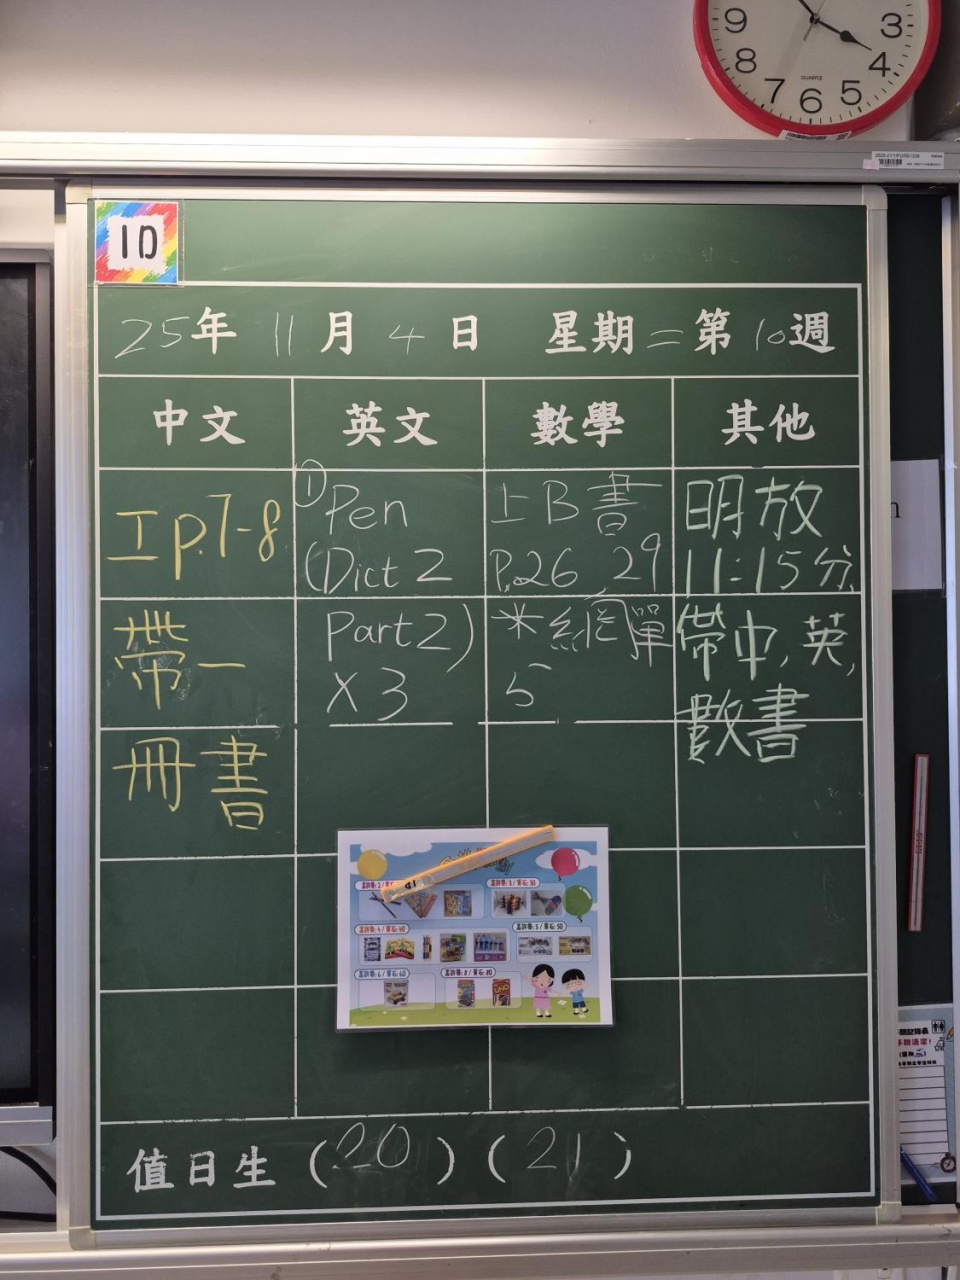 9
3
8
4
7
6
5
QUARTZ
1D
25年 11月 4日 星期二 第10週
中文 英文 數學 其他
工p.7-8
帶一
冊書
① Pen
(Dict 2
Part 2)
X3
上B書
P.26 29
*網單
5
明放
11:15分
帶中,英,
數書
UNO
值日生 (20) (21)